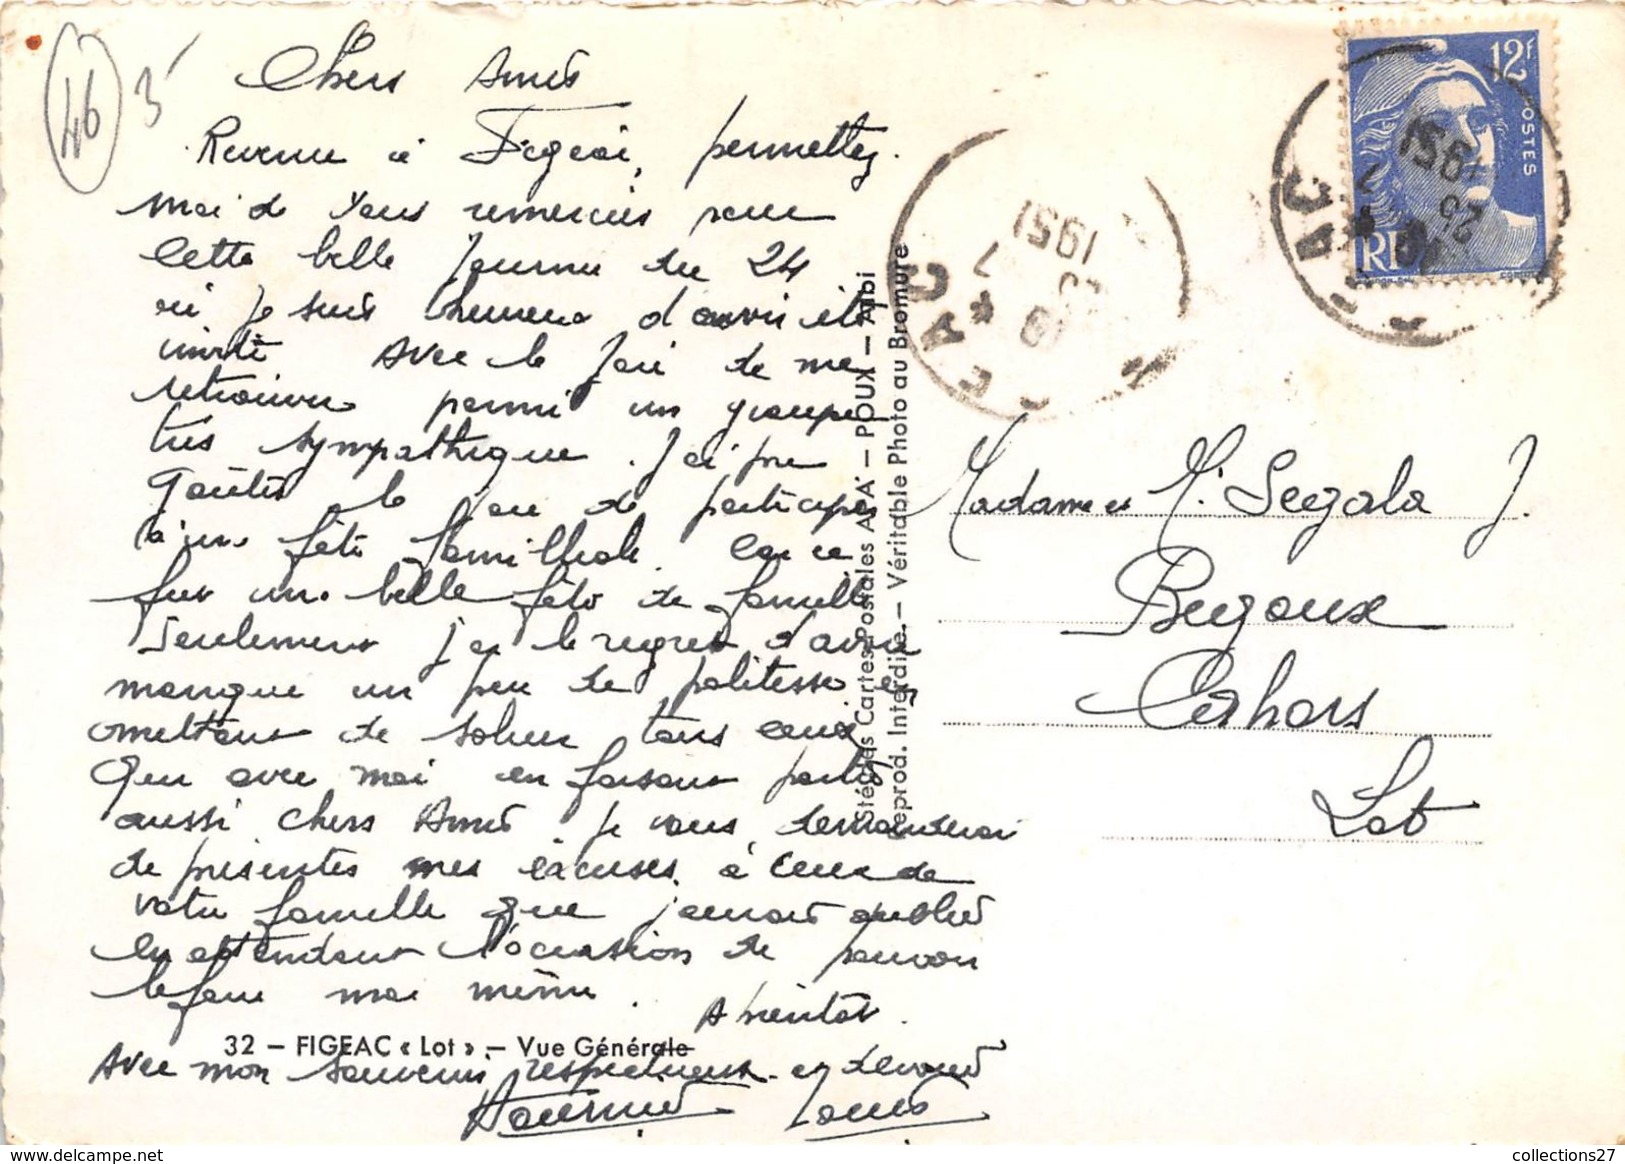 46
3
Chers Amis
Revenu à Figeac, permettez
moi de vous remercier pour
cette belle journée du 24
où je suis heureux d'avoir été
invité Avec la joie de me
retrouver parmi un groupe
très sympathique. J'ai pu
goûter la de participer
à une fête familliale. Car ce
fut une belle fête de famille
Seulement j'ai le regret d'avoir
manqué un peu de politesse en
omettant de saluer tous ceux
qui avec moi en faisant partie
aussi chers Amis. Je vous demanderai
de présenter mes excuses à ceux de
votre famille que j'aurais oublié
en attendant l'occasion de pouvoir
le faire moi même.
A bientot.
32 — FIGEAC « Lot » — Vue Générale
Avec mon souvenir respectueux et dévoué
Louis
Stégéas Cartes Postales A.A. — POUX — Albi
Reprod. Interdite. — Véritable Photo au Bromure
12F
POSTES
RF
1951
26
7
1951
7
EAC
Madame et Mr Segala J.
Begoux
Cahors
Lot
collections27